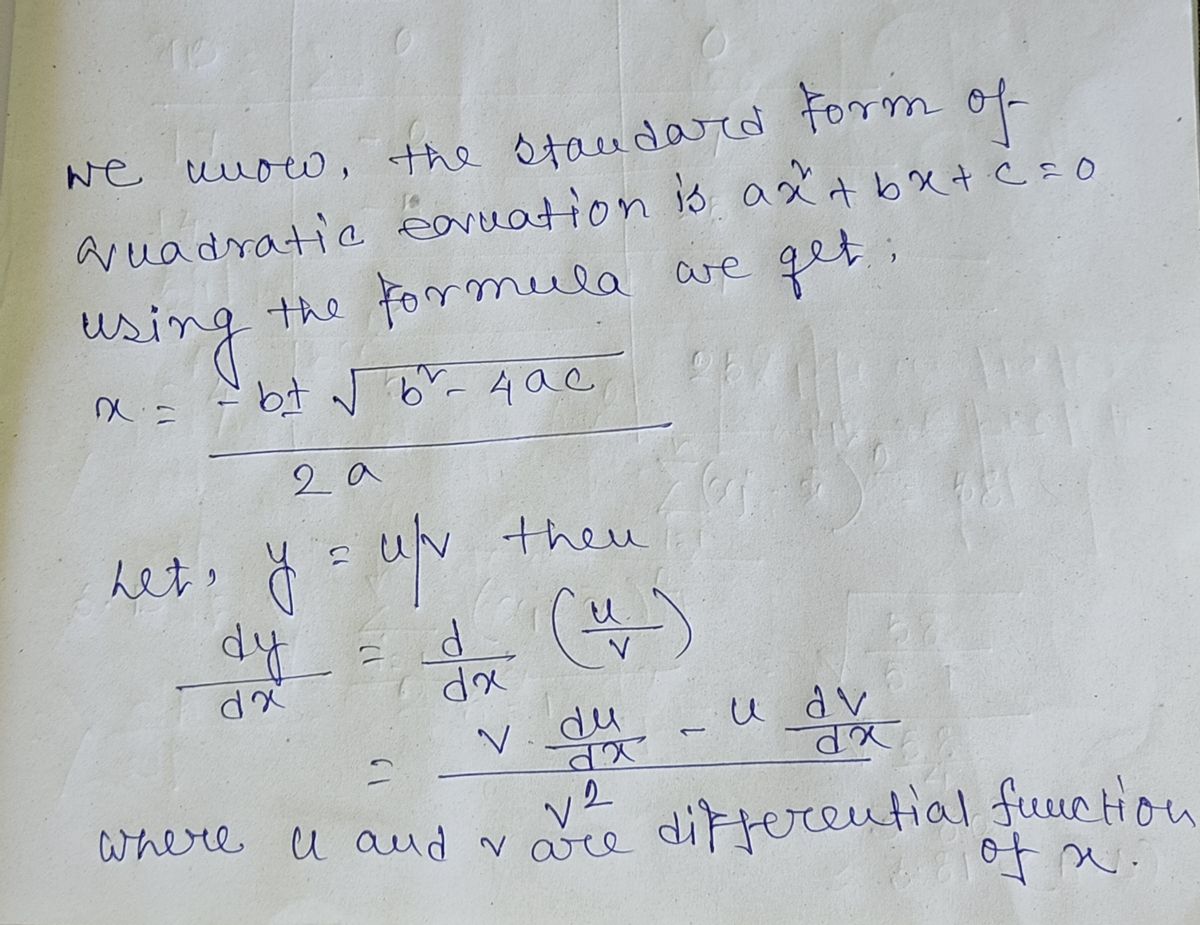 we know, the standard form of
quadratic equation is ax² + bx + c = 0
using the formula we get,
x = -b ± √b² - 4ac
2a
Let, y = u/v then
dy/dx = d/dx (u/v)
= v. du/dx - u dv/dx
v²
where u and v are differential function
of x.